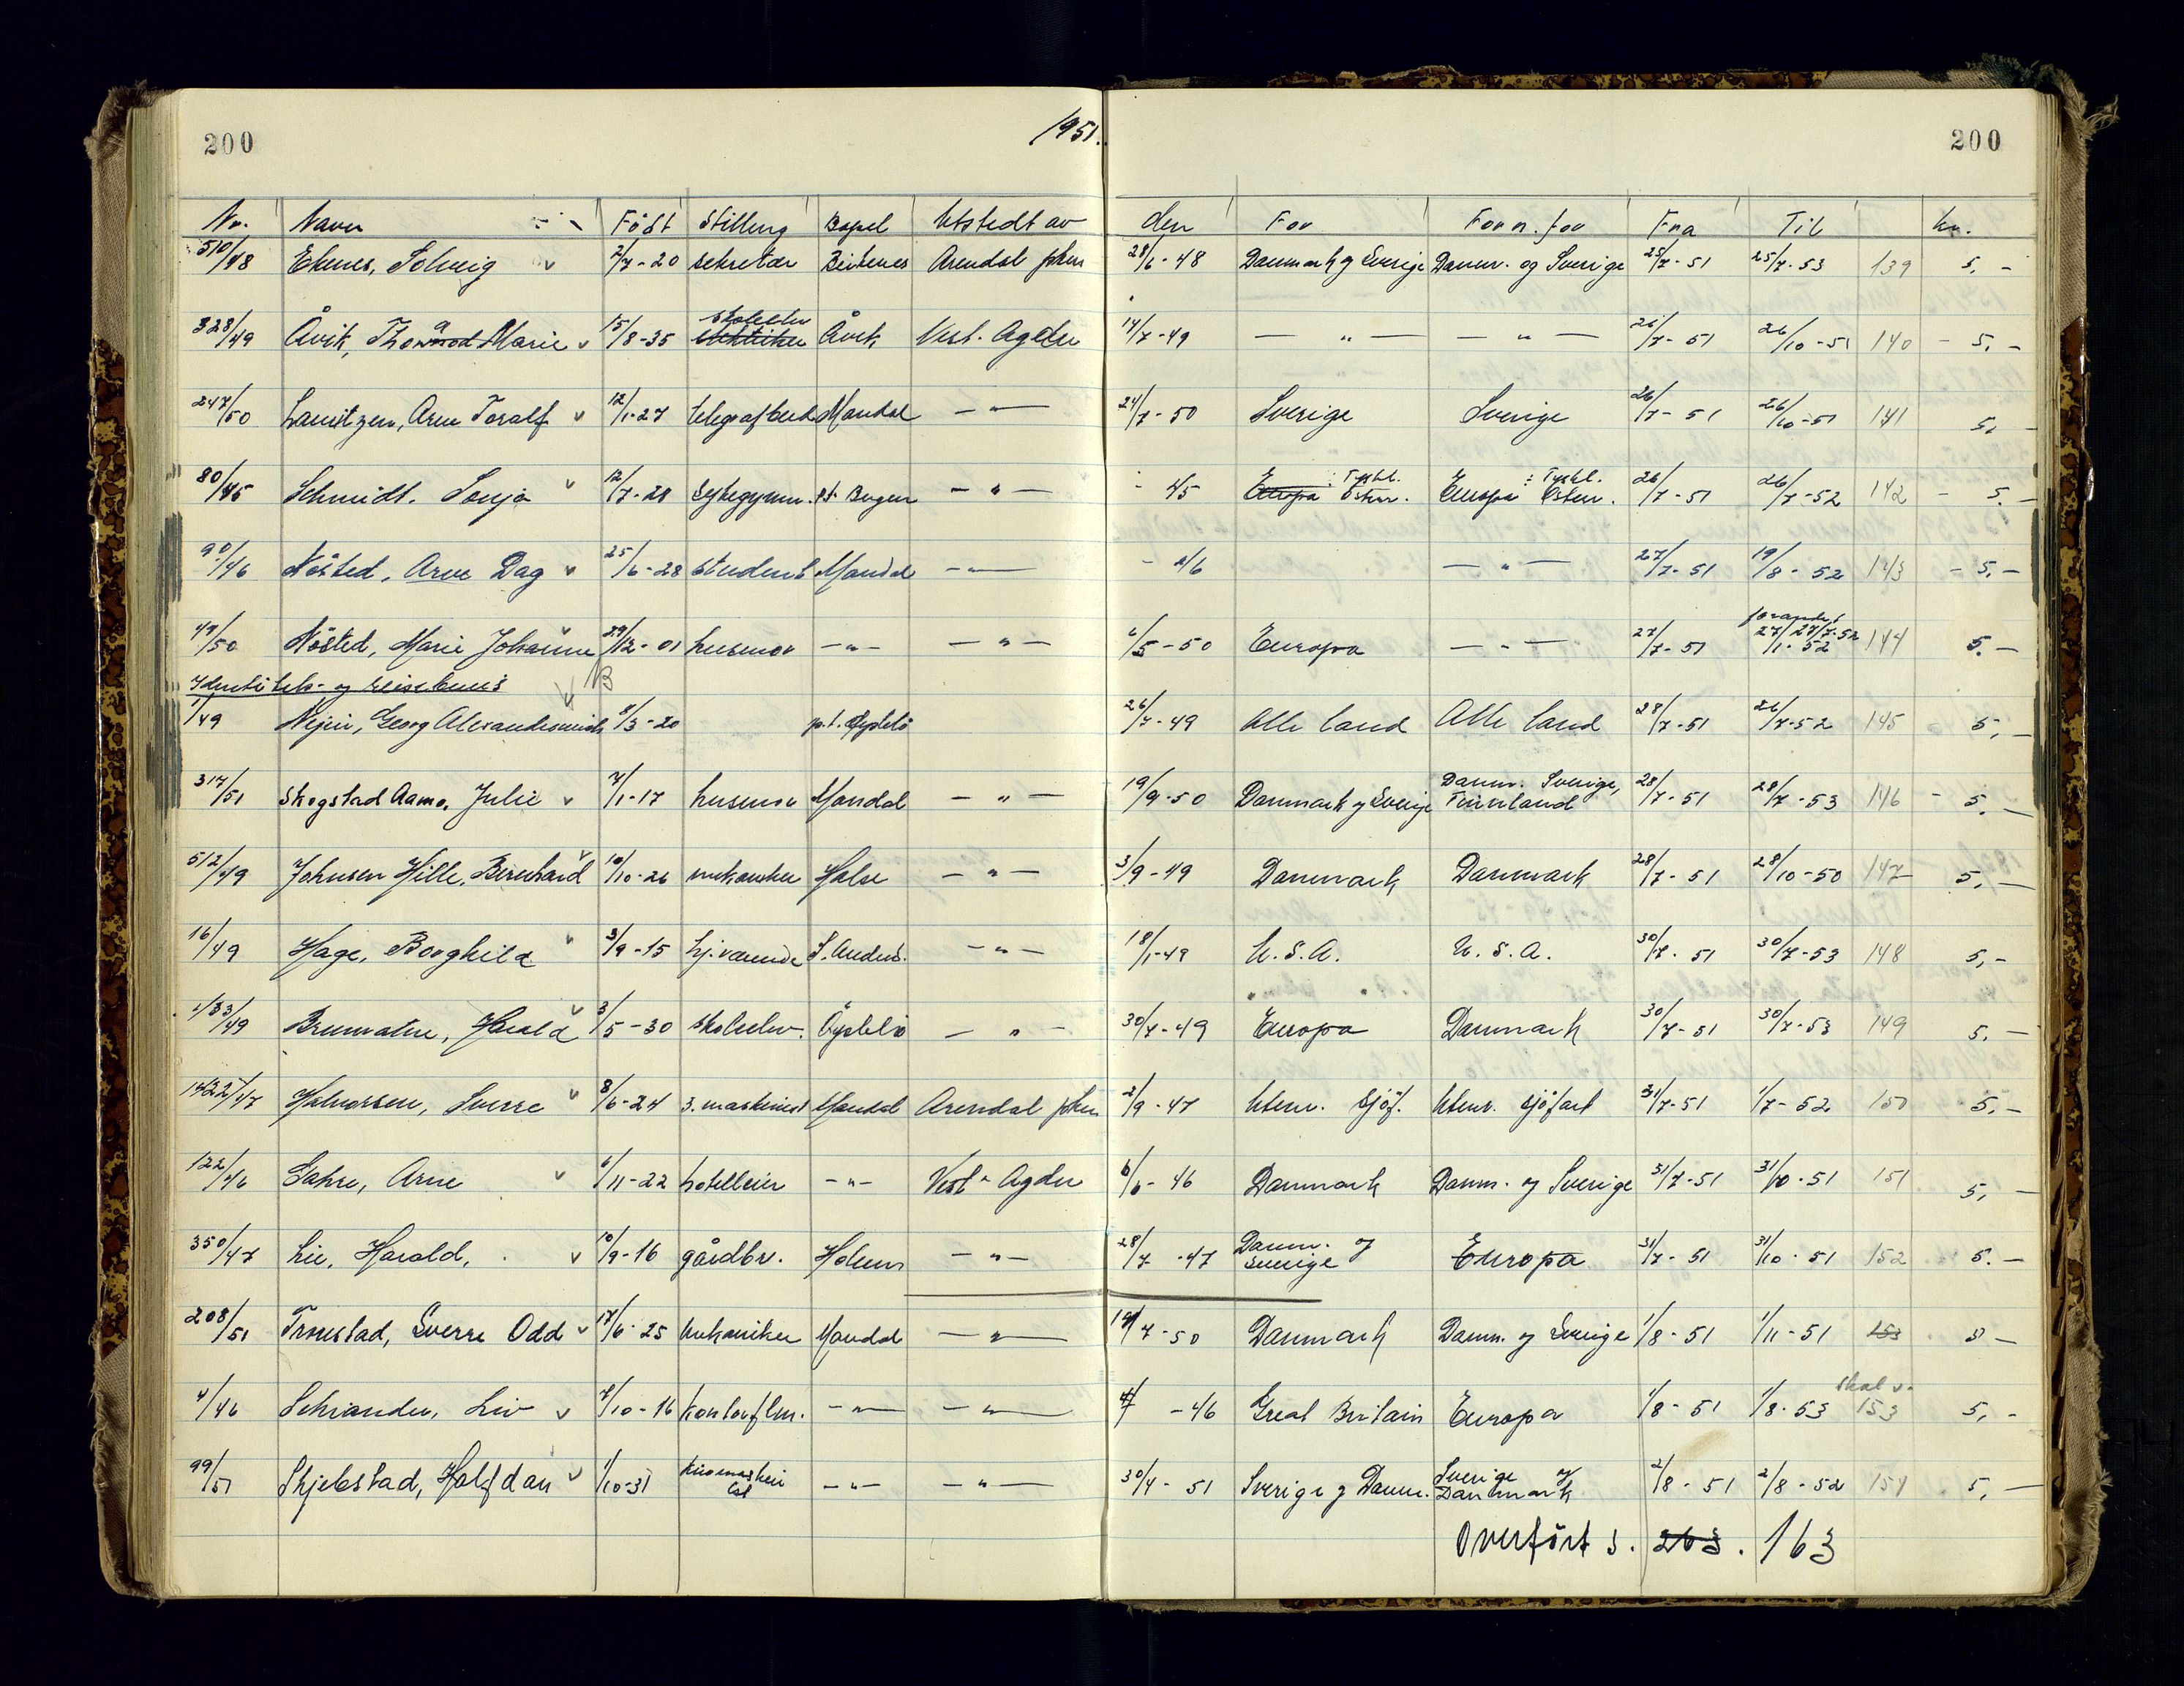 200 1951. 200
Nr. Navn Født Stilling Bopel Utstedt av den For Forn. for Fra Til kr.
510/48 Ekenes, Solveig v 2/7-20 sekretær Arendal pkm 28/6-48 Danmark og Sverige Danm. og Sverige 25/7-51 25/7-53 139 5,-
328/49 Åvik, Marie v 15/8-35 skoleelev Åvik Vest-Agder 14/7-49 — " — — " — 26/7-51 26/10-51 140 - 5,-
247/50 Lauritzen, Arne Toralf v 12/1-27 Mandal — " — 24/7-50 Sverige Sverige 26/7-51 26/10-51 141 5,-
80/45 Schmidt, Sonja v 12/7-28 sykegymn. — " — - 45 Europa : Tyskl. Østerr. Europa : Tyskl. Østerr. 26/7-51 26/7-52 142 - 5.-
90/46 Nøsted, Arve Dag v 25/6-28 student Mandal — " — - 46 — " — 27/7-51 19/8-52 143 - 5.-
49/50 Nøsted, Marie Johanne v 29/12-01 husmor — " — — " — 6/5-50 Europa — " — 27/7-51 27/1-52 27/7-52 144 5.-
Identitets- og reisebevis v NB
1/49 Nejin, Georg Alexandrowitsch 8/3-20 p.t. Øyslebø 26/7-49 Alle land Alle land 28/7-51 26/7-52 145 5,-
317/51 Skogstad Aamo, Julie v 7/1-17 husmor Mandal — " — 19/9-50 Danmark og Sverige Danm. Sverige, Finnland 28/7-51 28/7-53 146 - 5.-
512/49 Johnsen Hille, Bernhard v 10/10-26 mekaniker Halse — " — 3/9-49 Danmark Danmark 28/7-51 28/10-50 147 5,-
16/49 Hage, Borghild v 3/9-15 S. Audned. — " — 18/1-49 U.S.A. U.S.A. 30/7-51 30/7-53 148 5,-
433/49 Brunvatne, Harald v 3/5-30 skoleelev. Øyslebø — " — 30/7-49 Europa Danmark 30/7-51 30/7-53 149 5,-
1422/47 Halvorsen, Sverre v 8/6-24 3. maskinist Mandal Arendal pkm 2/9-47 Utenr. sjøf. Utenr. sjøfart 31/7-51 1/7-52 150 5.-
122/46 Gahre, Arne v 6/11-22 hotelleier — " — Vest-Agder 6/6-46 Danmark Danm. og Sverige 31/7-51 31/10-51 151 5,-
350/47 Lie, Harald, v 10/9-16 gårdbr. Holum — " — 28/7-47 Danm. og Sverige Europa 31/7-51 31/10-51 152 5.-
208/51 Tronstad, Sverre Odd v 17/6-25 mekaniker Mandal — " — 19/7-50 Danmark Danm. og Sverige 1/8-51 1/11-51 153 5 -
4/46 Schrander, Liv v 7/10-16 kontorflm. — " — — " — - 46 Great Britain Europa 1/8-51 1/8-53 skal v. 153 5,-
99/51 Skjebstad, Halfdan v 1/10-31 — " — — " — 30/4-51 Sverige og Danm. Sverige og Danmark 2/8-51 2/8-52 154 5,-
Overført s. 263. 163